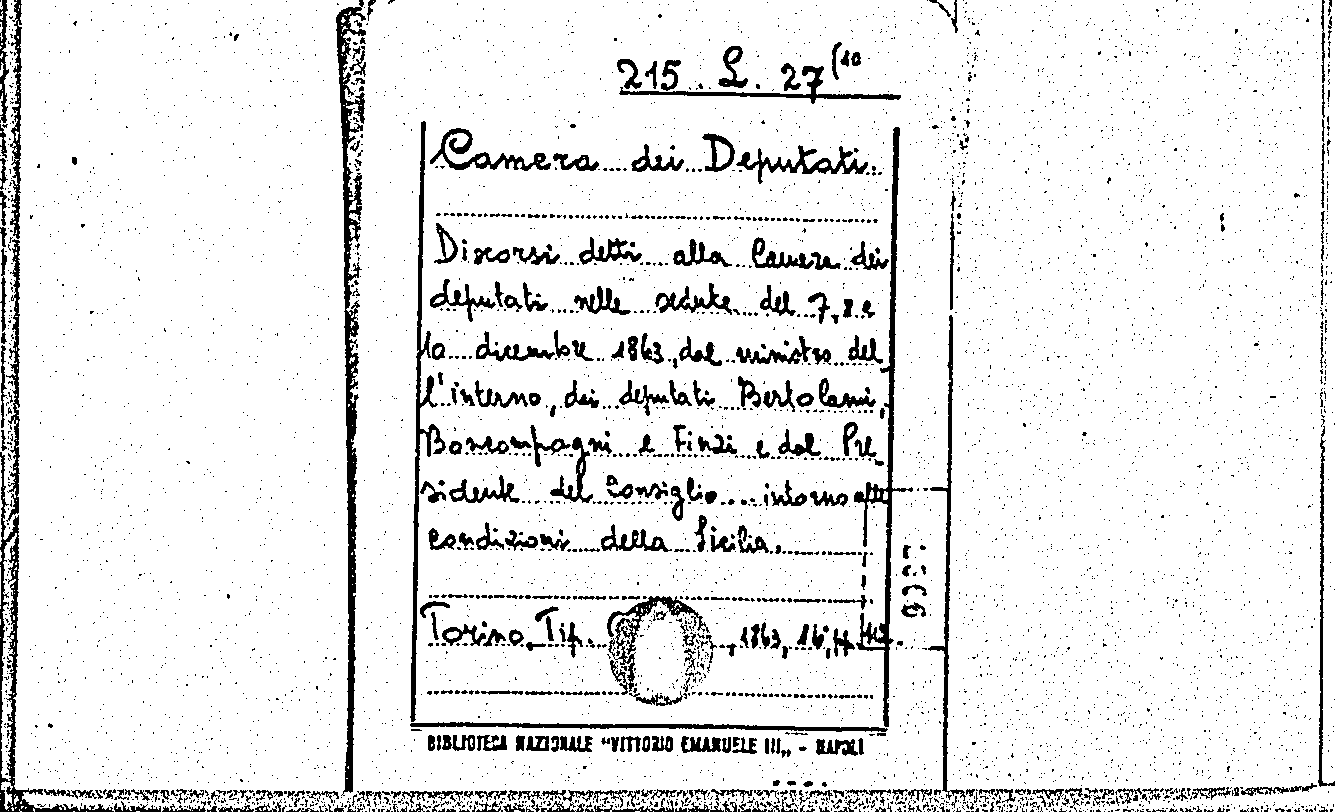 215. L. 27(10
Camera dei Deputati.
Discorsi detti alla Camera dei
deputati nelle sedute del 7, 8 e
10 dicembre 1863, dal ministro del
l'interno, dei deputati Bertolami,
Boncompagni e Finzi e dal Pre
sidente del Consiglio... intorno alle
condizioni della Sicilia.
Torino, Tip. , 1863, 16°,
BIBLIOTECA NAZIONALE "VITTORIO EMANUELE III„ - NAPOLI